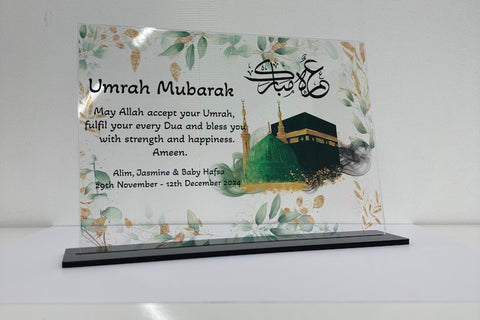 عمرة مبارك
Umrah Mubarak
May Allah accept your Umrah,
fulfil your every Dua and bless you
with strength and happiness.
Ameen.
Alim, Jasmine & Baby Hafsa
29th November - 12th December 2024